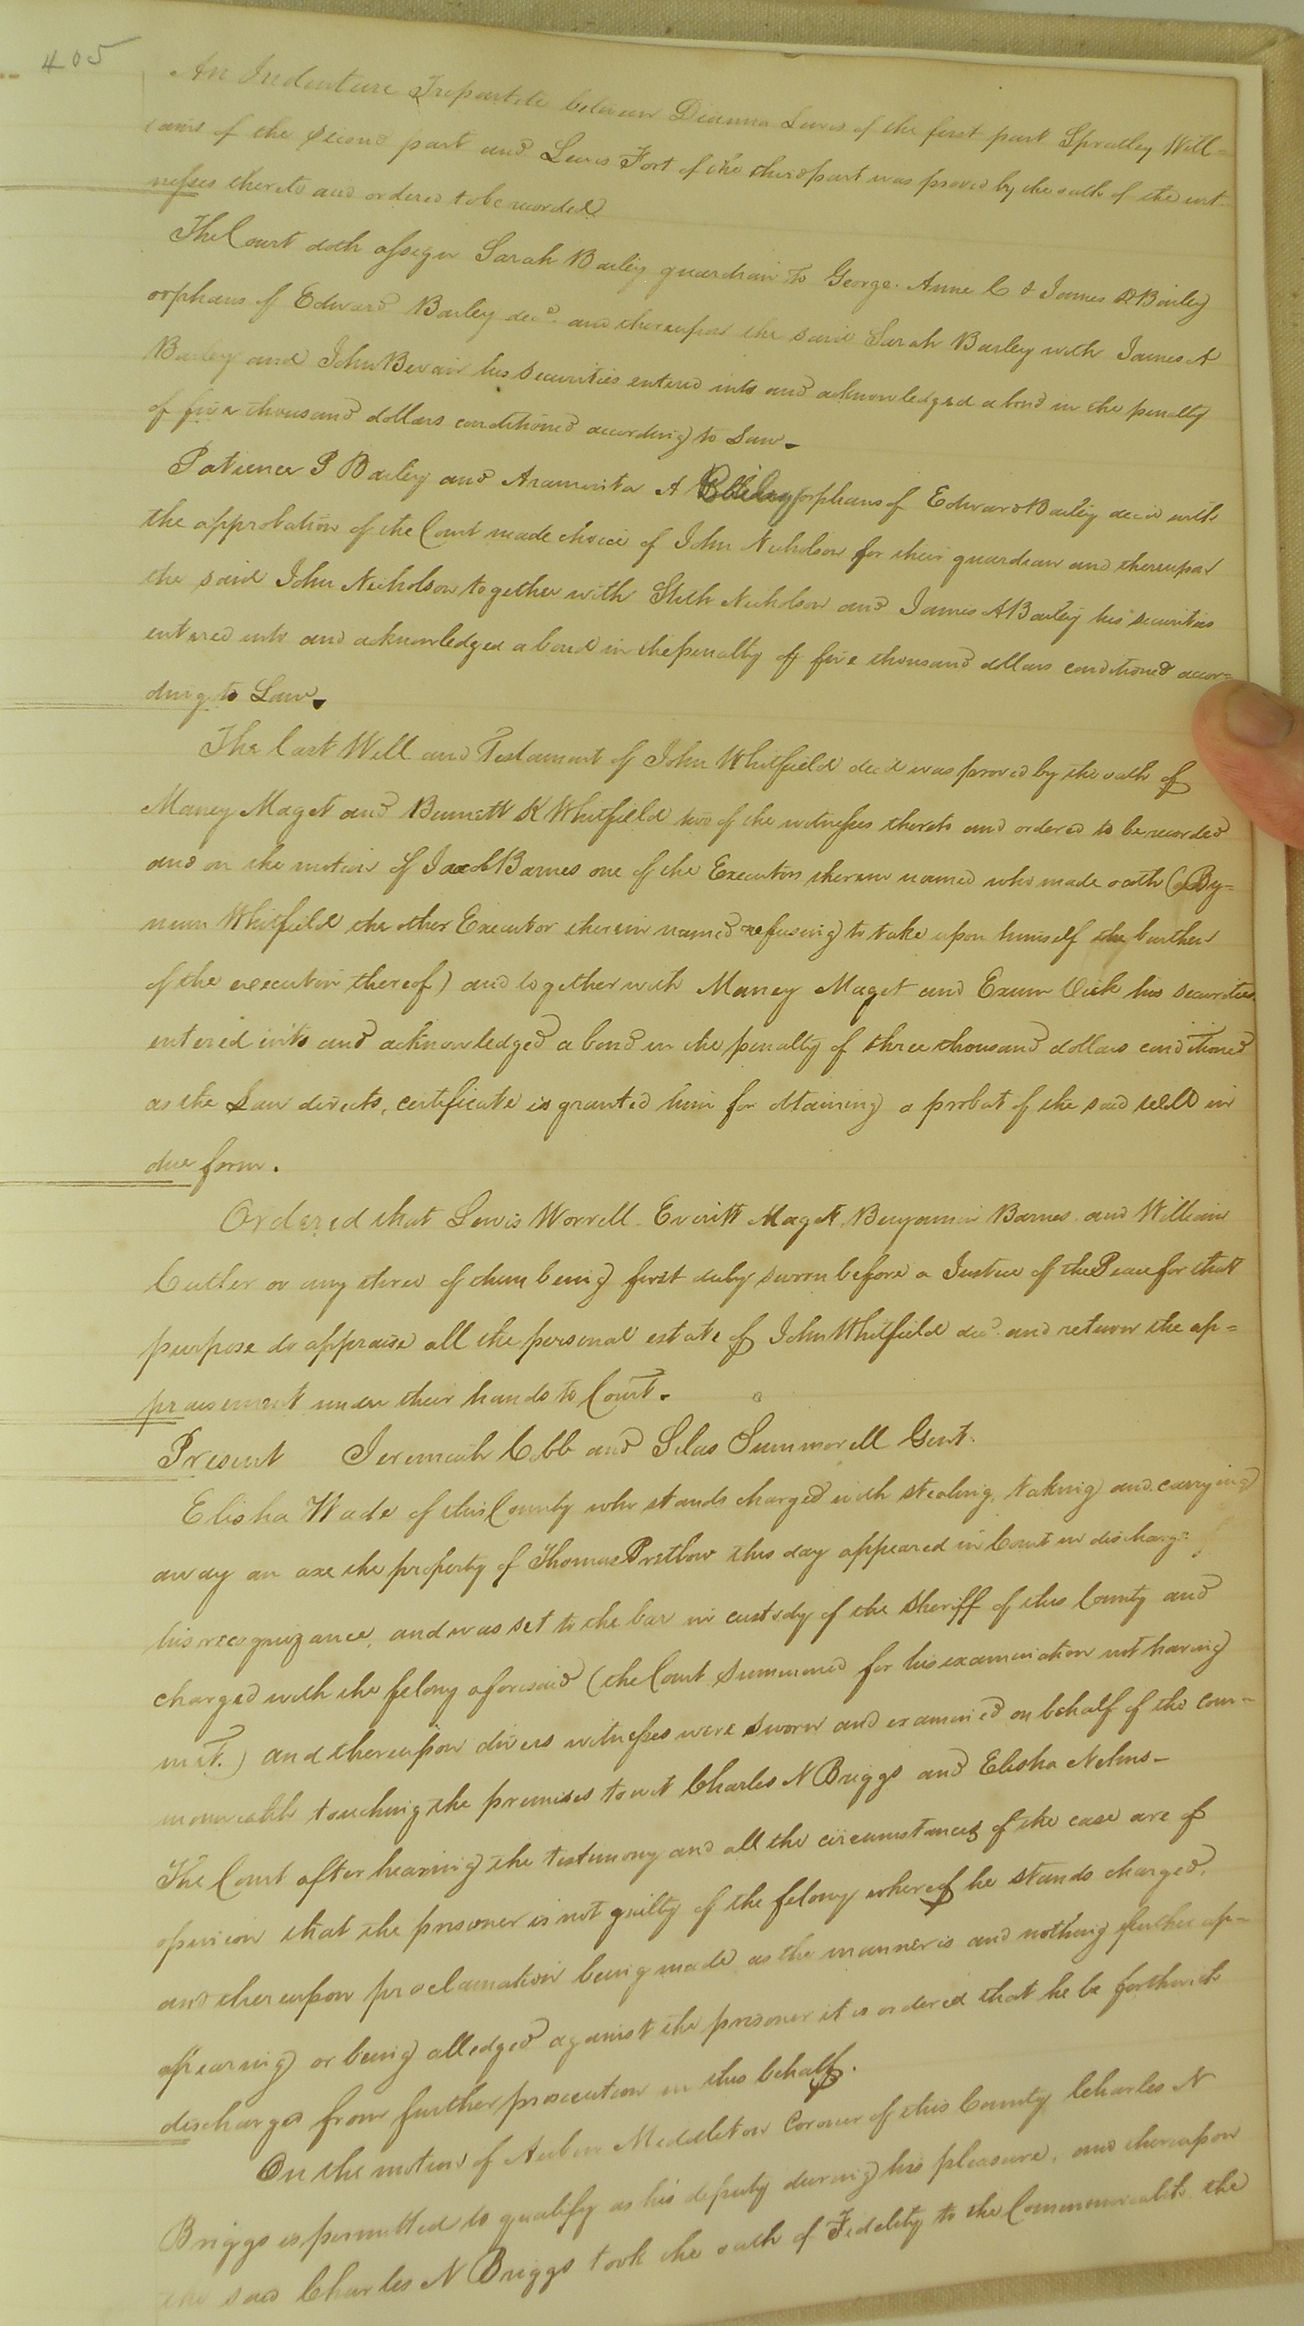 405
An Indenture Tripartite between Dianna Lewis of the first part Spratley Will=
iams of the second part and Lewis Fort of the third part was proved by the oath of the wit-
nesses thereto and ordered to be recorded
The Court doth assign Sarah Bailey guardian to George. Anne C & James D Bailey
orphans of Edward Bailey decd. and thereupon the said Sarah Bailey with James A
Bailey and John Bevan his securities entered into and acknowledged a bond in the penalty
of five thousand dollars conditioned according to Law.
Patience P Bailey and Araminta A Bailey orphans of Edward Bailey decd with
the approbation of the Court made choice of John Nicholson for their guardian and thereupon
the said John Nicholson together with Stith Nicholson and James A Bailey his securities
entered into and acknowledged a bond in the penalty of five thousand dollars conditioned accor=
ding to Law.
The last Will and Testament of John Whitfield decd was proved by the oath of
Maney Maget and Bennett K Whitfield two of the witnesses thereto and ordered to be recorded
and on the motion of Jacob Barnes one of the Executors therein named who made oath (By=
num Whitfield the other Executor therein named refusing to take upon himself the burthen
of the execution thereof) and together with Maney Maget and Exum Vick his securities
entered into and acknowledged a bond in the penalty of three thousand dollars conditioned
as the Law directs, certificate is granted him for obtaining a probat of the said will in
due form.
Ordered that Lewis Worrell. Everitt Magett, Benjamin Barnes and William
Cutler or any three of them being first duly sworn before a Justice of the Peace for that
purpose do appraise all the personal estate of John Whitfield decd. and return the ap=
praisement under their hands to Court.
Present Jeremiah Cobb and Silas Summerell Gent.
Elisha Wade of this County who stands charged with stealing, taking and carrying
away an axe the property of Thomas Pretlow this day appeared in Court in discharge
his recognizance, and was set to the bar in custody of the Sheriff of this County and
charged with the felony aforesaid (the Court summoned for his examination not having
met.) and thereupon divers witnesses were sworn and examined on behalf of the com=
monwealth touching the premises towit Charles N Briggs and Elisha Nelms-
The Court after hearing the testimony and all the circumstances of the case are of
opinion that the prisoner is not guilty of the felony whereof he stands charged,
and thereupon proclamation being made as the manner is and nothing further ap=
appearing or being alledged against the prisoner it is ordered that he be forthwith
discharged from further prosecution in this behalf.
On the motion of Middleton Coroner of this County Charles N
Briggs is permitted to qualify as his deputy during his pleasure, and thereupon
the said Charles N Briggs took the oath of Fidelity to the Commonwealth the